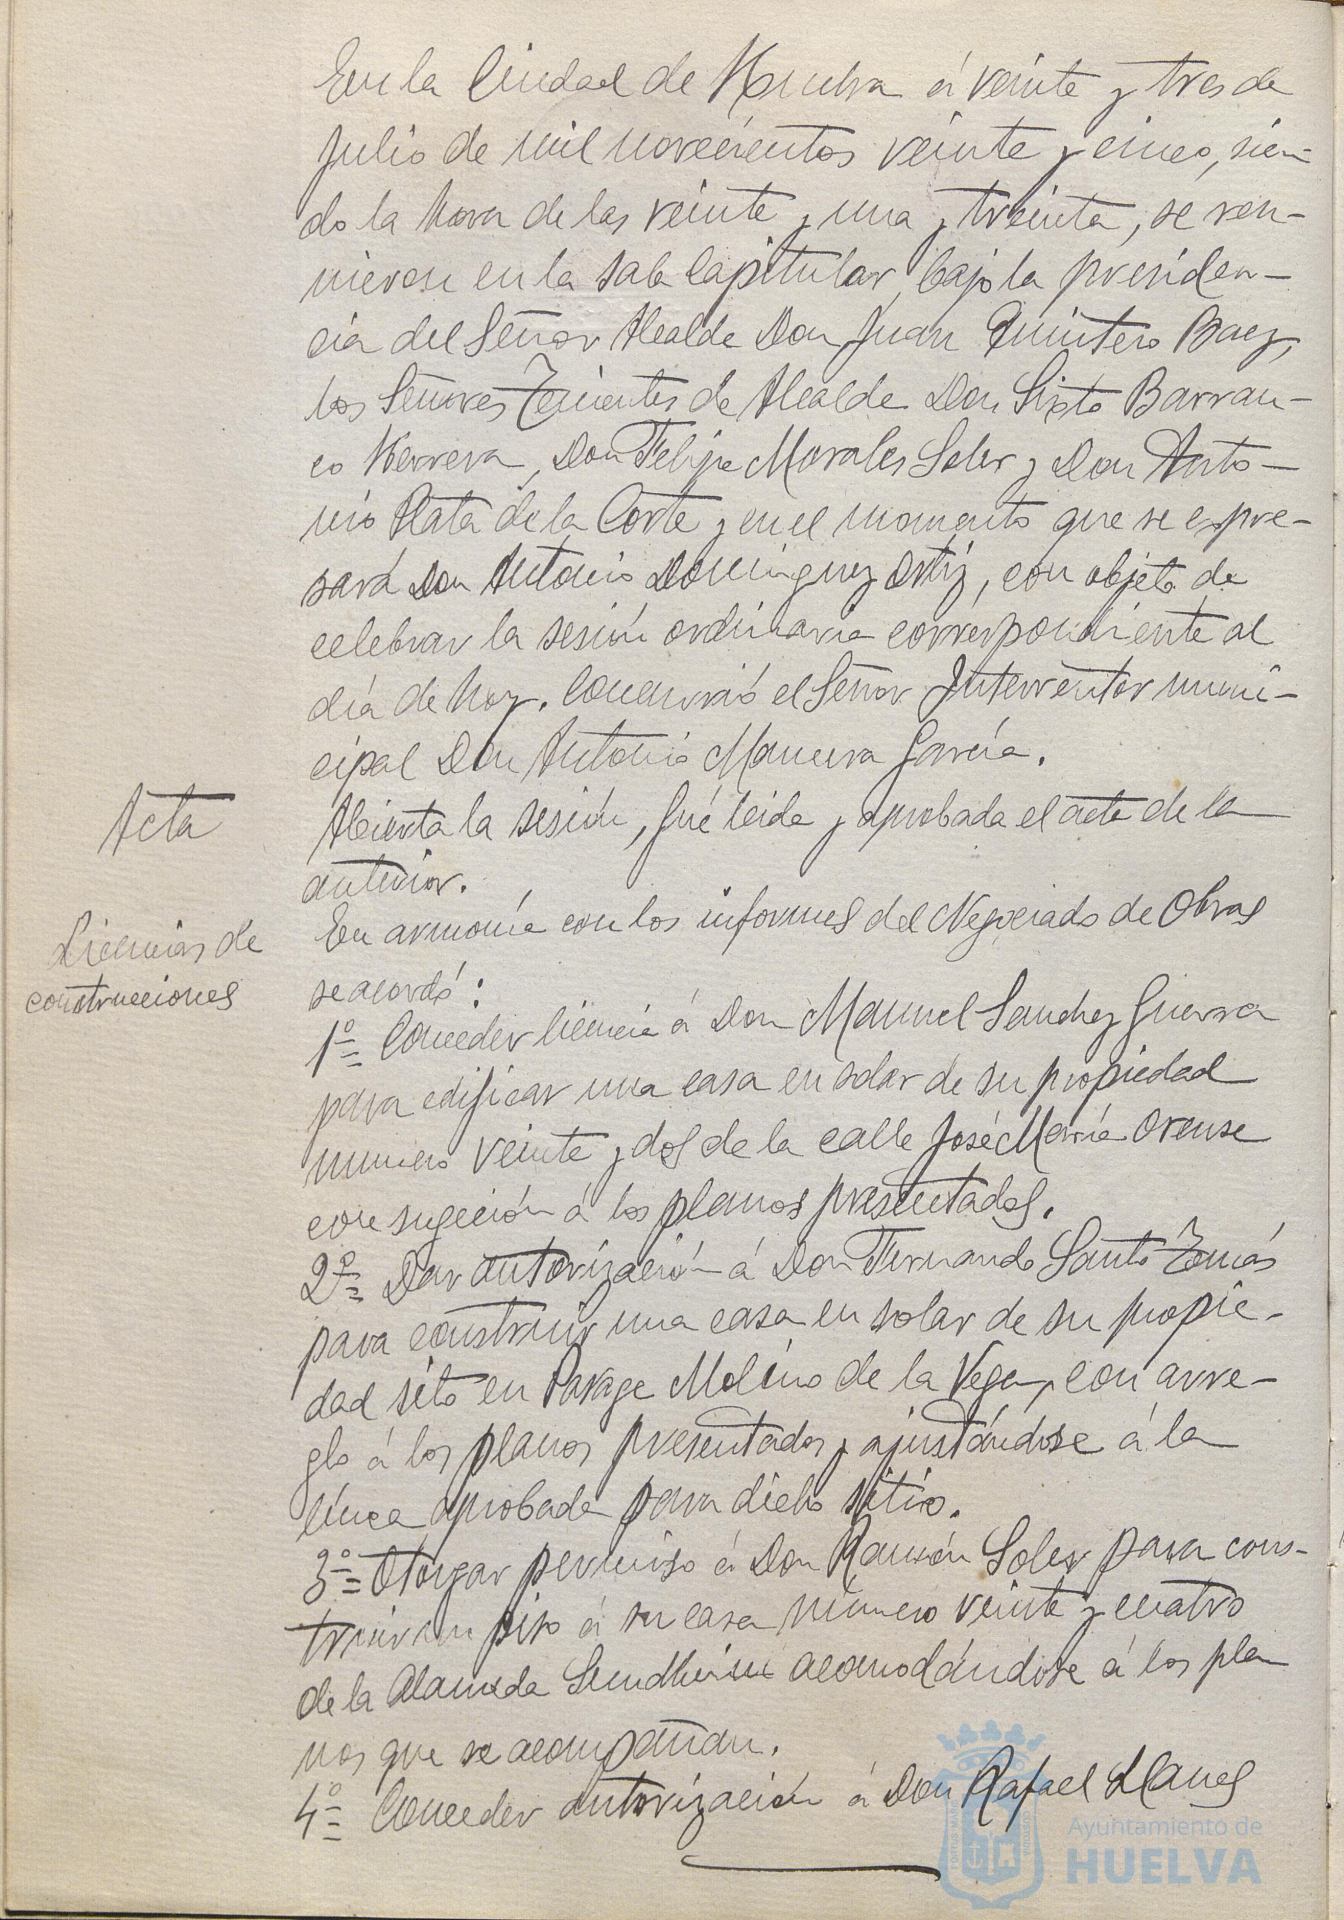 En la Ciudad de Huelva á veinte y tres de
Julio de mil novecientos veinte y cinco, sien-
do la hora de las veinte y una y treinta, se reu-
nieron en la sala Capitular, bajo la presiden-
cia del Señor Alcalde Don Juan Quintero Baez,
los Señores Tenientes de Alcalde Don Sixto Barran-
co Herrera, Don Felipe Morales Soler y Don Anto-
nio Plata de la Corte y en el momento que se expre-
sará Don Antonio Dominguez Ortiz, con objeto de
celebrar la sesión ordinaria correspondiente al
día de hoy. Concurrió el Señor Interventor muni-
cipal Don Antonio García.
Acta
Abierta la sesión, fué leida y aprobada el acta de la
anterior.
Licencias de
construcciones
En armonía con los informes del Negociado de Obras
se acordó:
1º Conceder licencia á Don Manuel Sanchez Guerra
para edificar una casa en solar de su propiedad
número veinte y dos de la calle José María Orense
con sugeción á los planos presentados.
2º Dar autorización á Don Fernando Santo Tomás
para construir una casa en solar de su propie-
dad sito en Parage Molino de la Vega, con arre-
glo á los planos presentados y ajustándose á la
línea aprobada para dicho sitio.
3º Otorgar permiso á Don Ramón Soler para cons-
truir un piso á su casa número veinte y cuatro
de la Alameda Sundheim acomodándose á los pla
nos que se acompañan.
4º Conceder autorización á Don Rafael Llanes
Ayuntamiento de
HUELVA